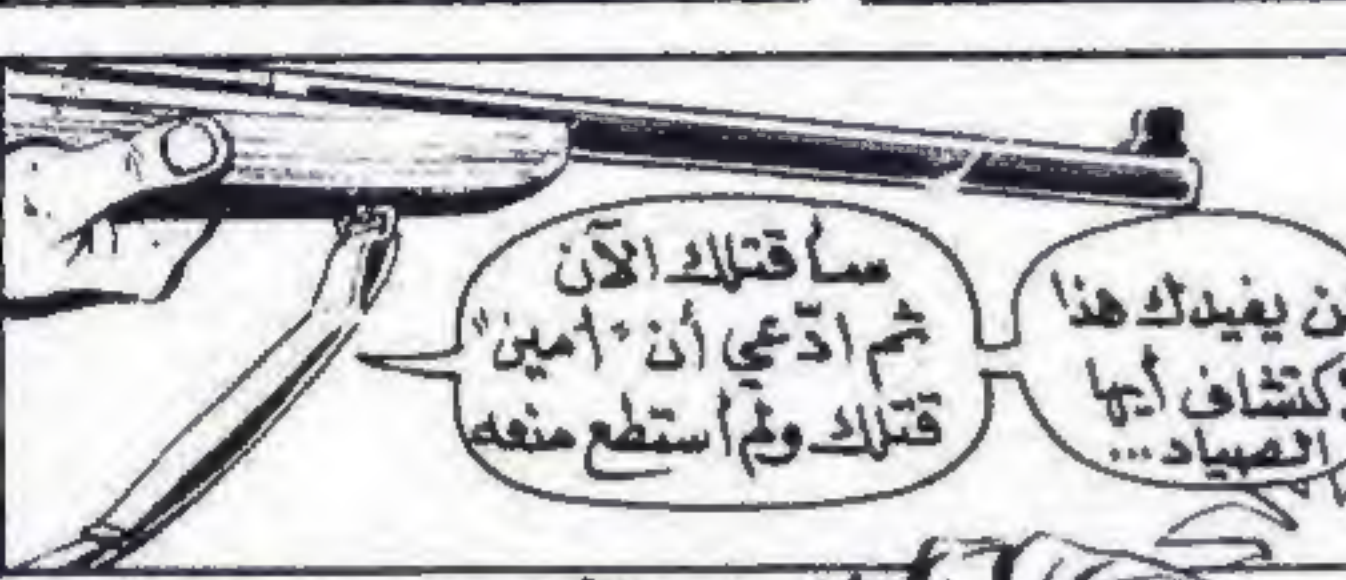 يفيدك هذا
أيها
الصياد...
سأقتلك الآن
ثم ادّعي أن "أمين"
قتلك ولم أستطع منعه